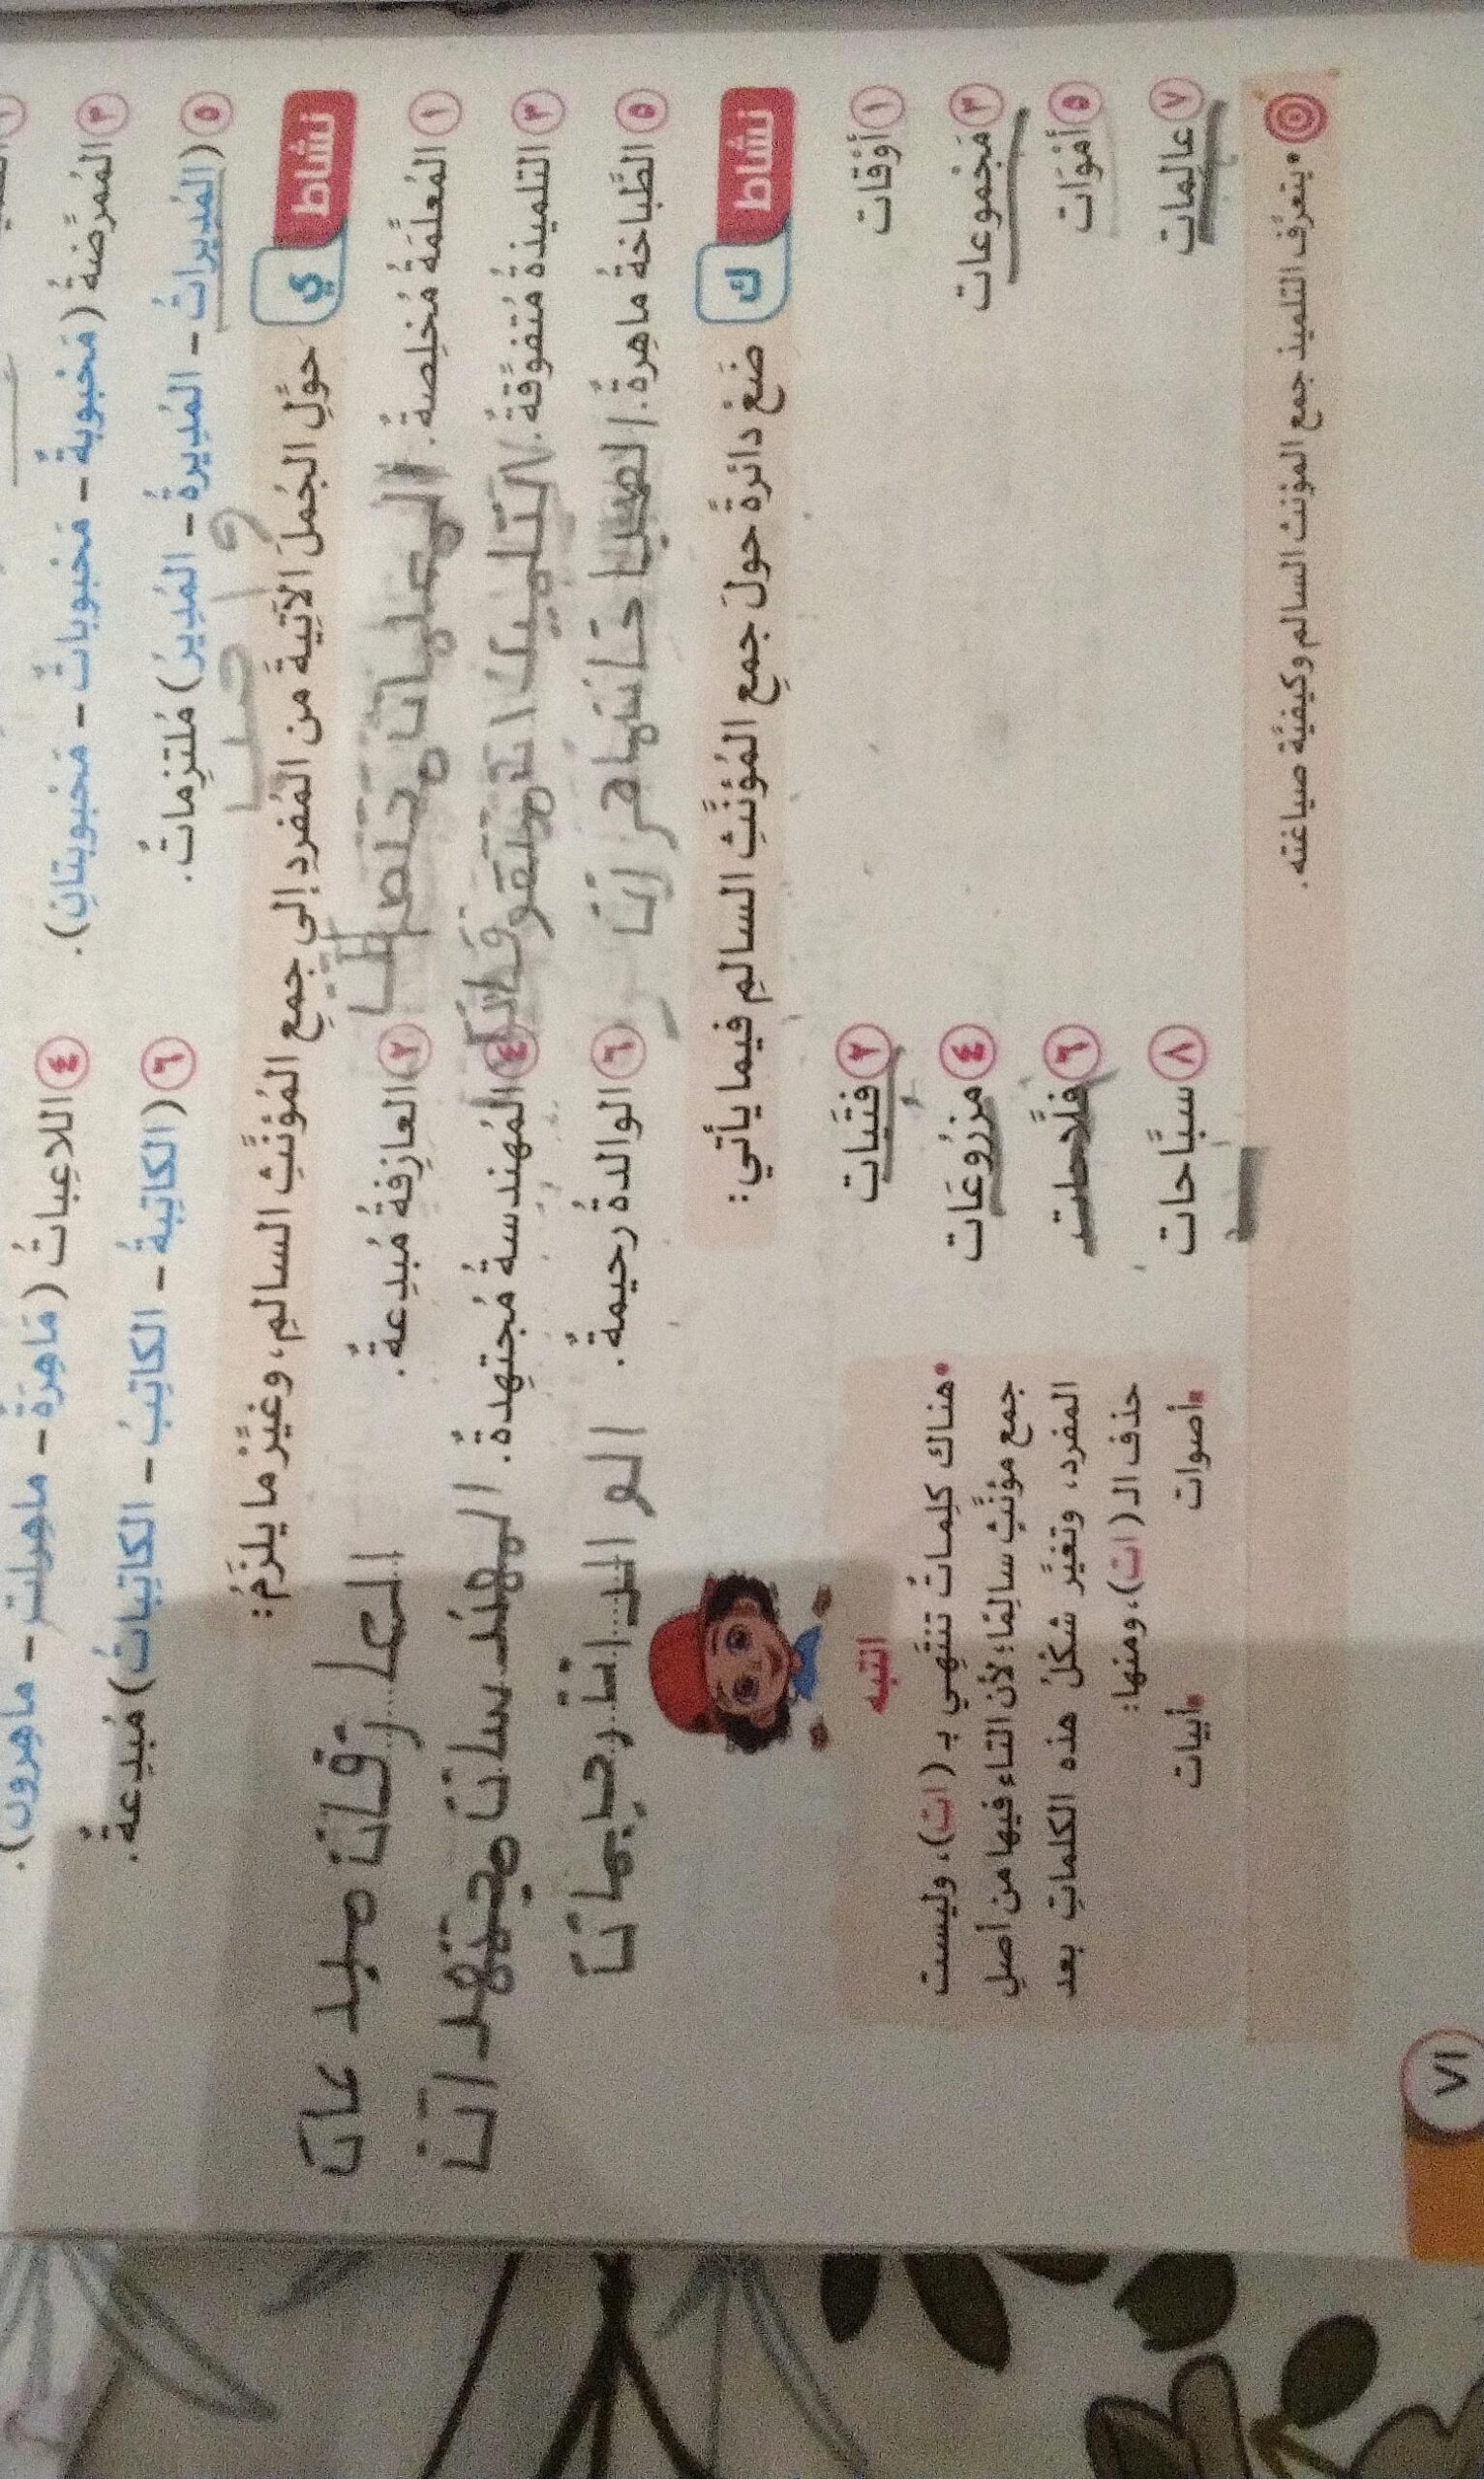 ٣ المُمَرِّضَةُ (مَحْبُوبةٌ - مَحْبُوباتٌ - مَحْبُوبتانِ).
٤ اللاعِباتُ (مَاهِرَةٌ - ماهِراتٌ - ماهِرون).
٥ (المُدِيراتُ - المُدِيرةُ - المُدِيرُ) مُلتزِماتٌ.
٦ (الكاتِبةُ - الكاتِبُ - الكاتِباتُ) مُبدِعةٌ.
نشاط ي حوِّلِ الجُملَ الآتِيةَ من المُفردِ إلى جمعِ المُؤنَّثِ السالمِ، وغيِّرْ ما يلزَمُ:
١ المُعلِّمَةُ مُخلِصةٌ.
المعلمات مخلصات
٢ العازِفةُ مُبدِعةٌ.
العازفات مبدعات
٣ التلميذةُ مُتفوِّقةٌ.
٤ المُهندسةُ مُجتهِدةٌ.
المهندسات مجتهدات
٥ الطَّباخةُ ماهِرةٌ.
الطباخات ماهرات
٦ الوالدةُ رحيمةٌ.
الوالدات رحيمات
نشاط ك ضَعْ دائرةً حولَ جمعِ المُؤنَّثِ السالمِ فيما يأتي:
١ أوْقات
٢ فتَيَات
٣ مَجْموعات
٤ مزرُوعَات
٥ أمْوَات
٦ فلَّاحات
٧ عالِمات
٨ سبَّاحات
انتبه
• هناك كلِماتٌ تنتَهِي بـ (ات)، وليست
جمع مؤنَّثٍ سالِمًا؛ لأن التاء فيها من أصلِ
المفرد، وتغيَّر شكلُ هذه الكلماتِ بعد
حذف الـ (ات)، ومنها:
• أصوات • أبيات
• يتعرَّف التلميذ جمع المؤنث السالم وكيفيَّة صياغته.
٧١